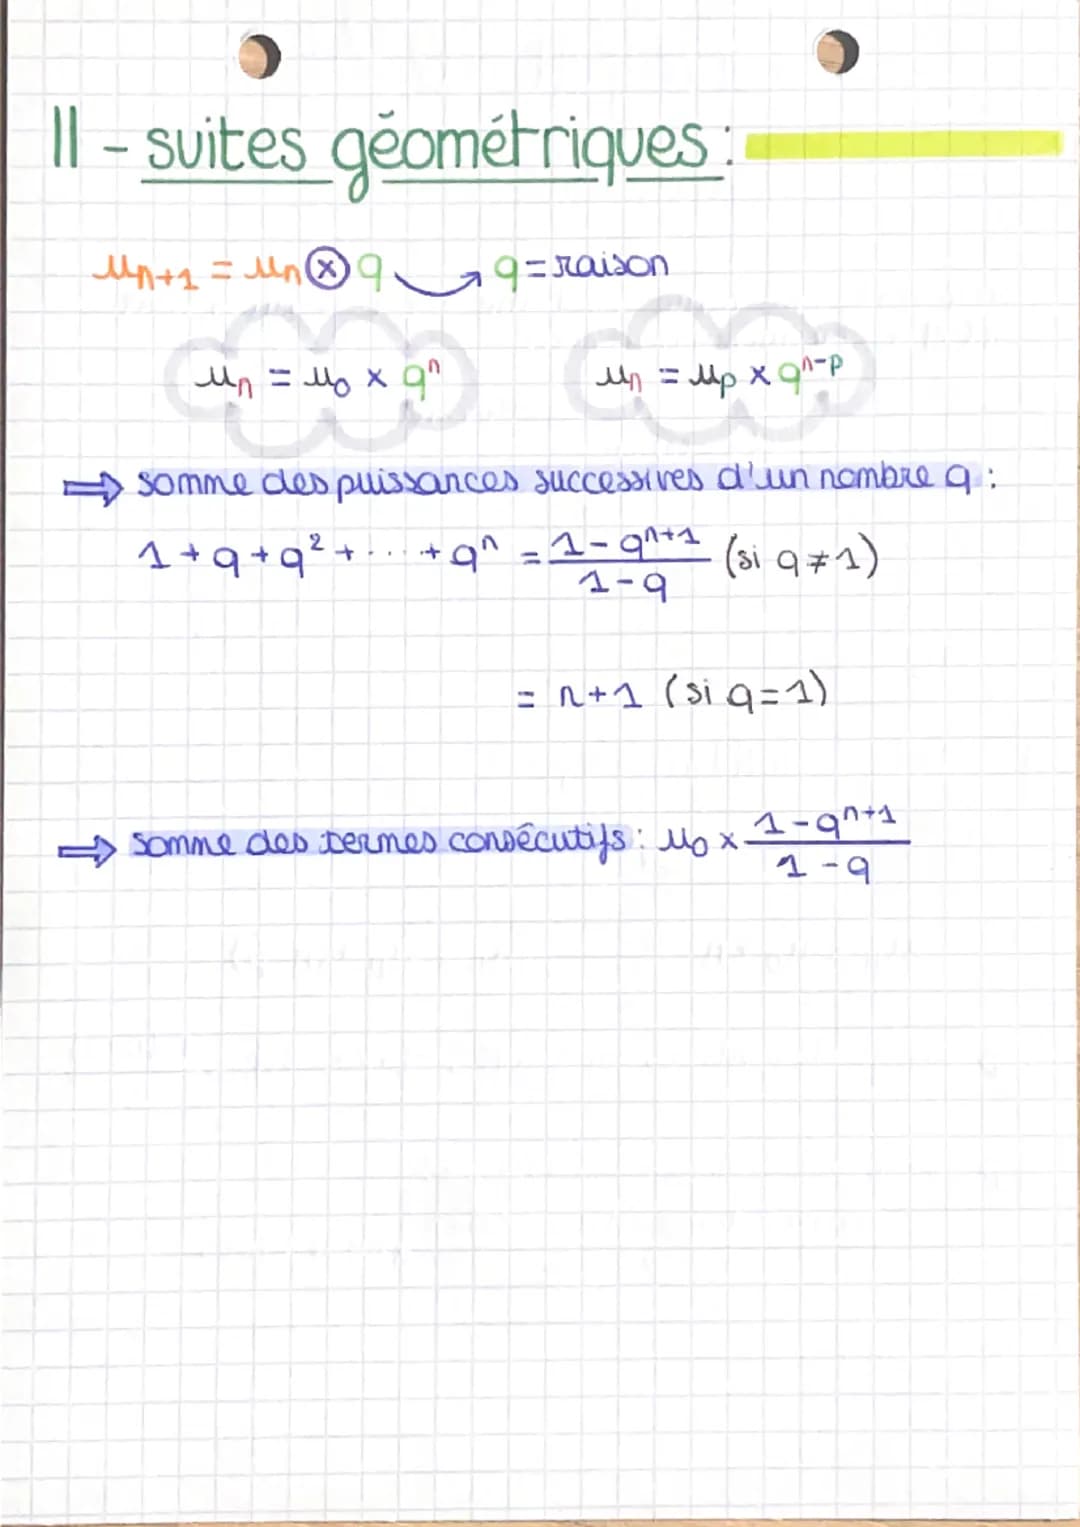 II - suites géométriques :
un+1 = un ⊗ q → q = raison
un = u0 × qⁿ
un = up × qⁿ⁻ᵖ
⇒ somme des puissances successives d'un nombre q :
1 + q + q² + .... + qⁿ = (1 - qⁿ⁺¹)/(1 - q) (si q ≠ 1)
= n+1 (si q = 1)
⇒ somme des termes consécutifs : u0 × (1 - qⁿ⁺¹)/(1 - q)